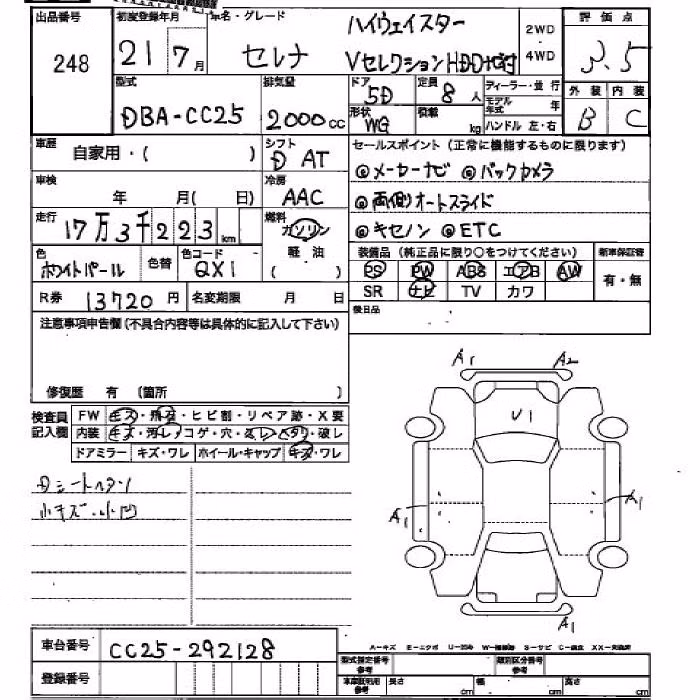 出品番号 初度登録年月 車名・グレード ハイウェイスター 2WD 評価点
248 21年 7月 セレナ VセレクションHDD 4WD 3.5
型式 排気量 ドア 定員 ディーラー・並行 外装 内装
DBA-CC25 2000cc 5D 8人 モデル年式 年 B C
形状 WG 積載 kg ハンドル 左・右
車歴 自家用・( ) シフト D AT セールスポイント (正常に機能するものに限ります)
車検 年 月( 日) 冷房 AAC ◎メーカーナビ ◎バックカメラ
◎両側オートスライド
走行 17万3千223km 燃料 ガソリン ◎キセノン ◎ETC
軽油 ( )
色 ホワイトパール 色替 色コード QX1 装備品 (純正品に限り○をつけてください) 新車保証書
PS PW ABS エアB AW 有・無
R券 13720円 名変期限 月 日 SR ナビ TV カワ
注意事項申告欄(不具合内容等は具体的に記入して下さい) 後日品
修復歴 有 (箇所 )
検査員記入欄 FW キズ・飛石・ヒビ割・リペア跡・X要
内装 キズ・汚レ・コゲ・穴・スレ・ヘタリ・破レ
ドアミラー キズ・ワレ ホイール・キャップ キズ・ワレ
A1 A2
U1
Dシートヘタリ
小キズ・小凹
A1 A1
A1
A-キズ E-エクボ
車台番号 CC25-292128
型式指定番号 類別区分番号
参考 参考
登録番号 車庫証明用参考 長さ cm 幅 cm 高さ cm